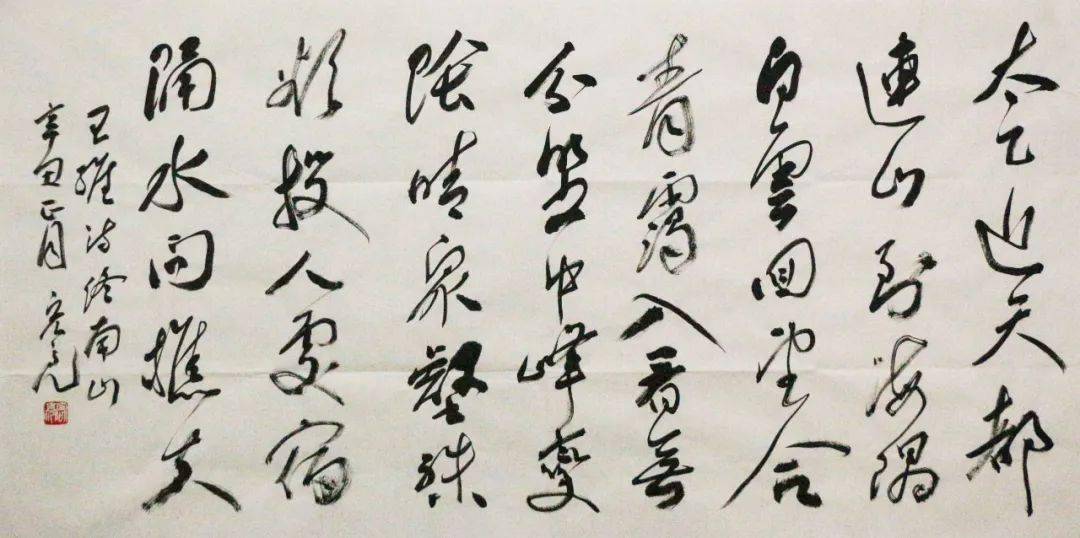 太乙近天都
連山到海隅
白雲回望合
青靄入看無
分埜中峰變
陰晴眾壑殊
欲投人處宿
隔水問樵夫
王維詩終南山
辛丑正月